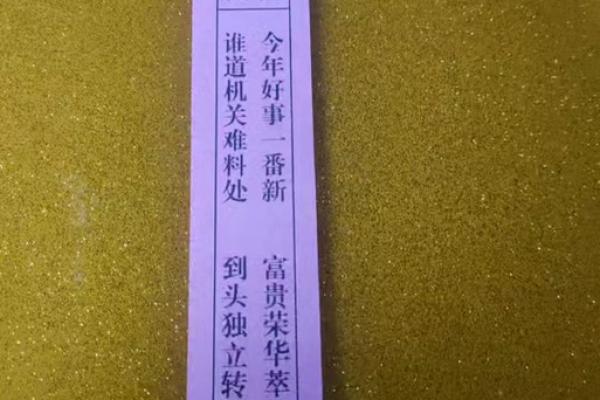 今年好事一番新
富贵荣华萃
谁道机关难料处
到头独立转